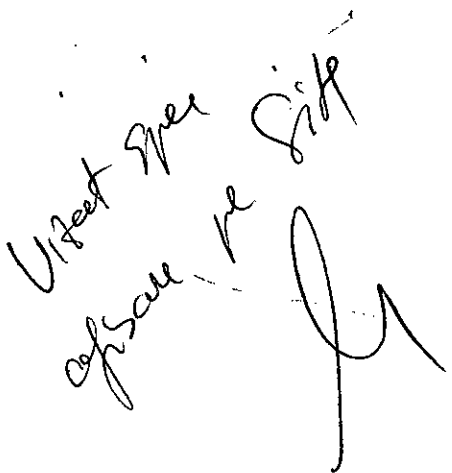 Vizat spre
afisare pe Site